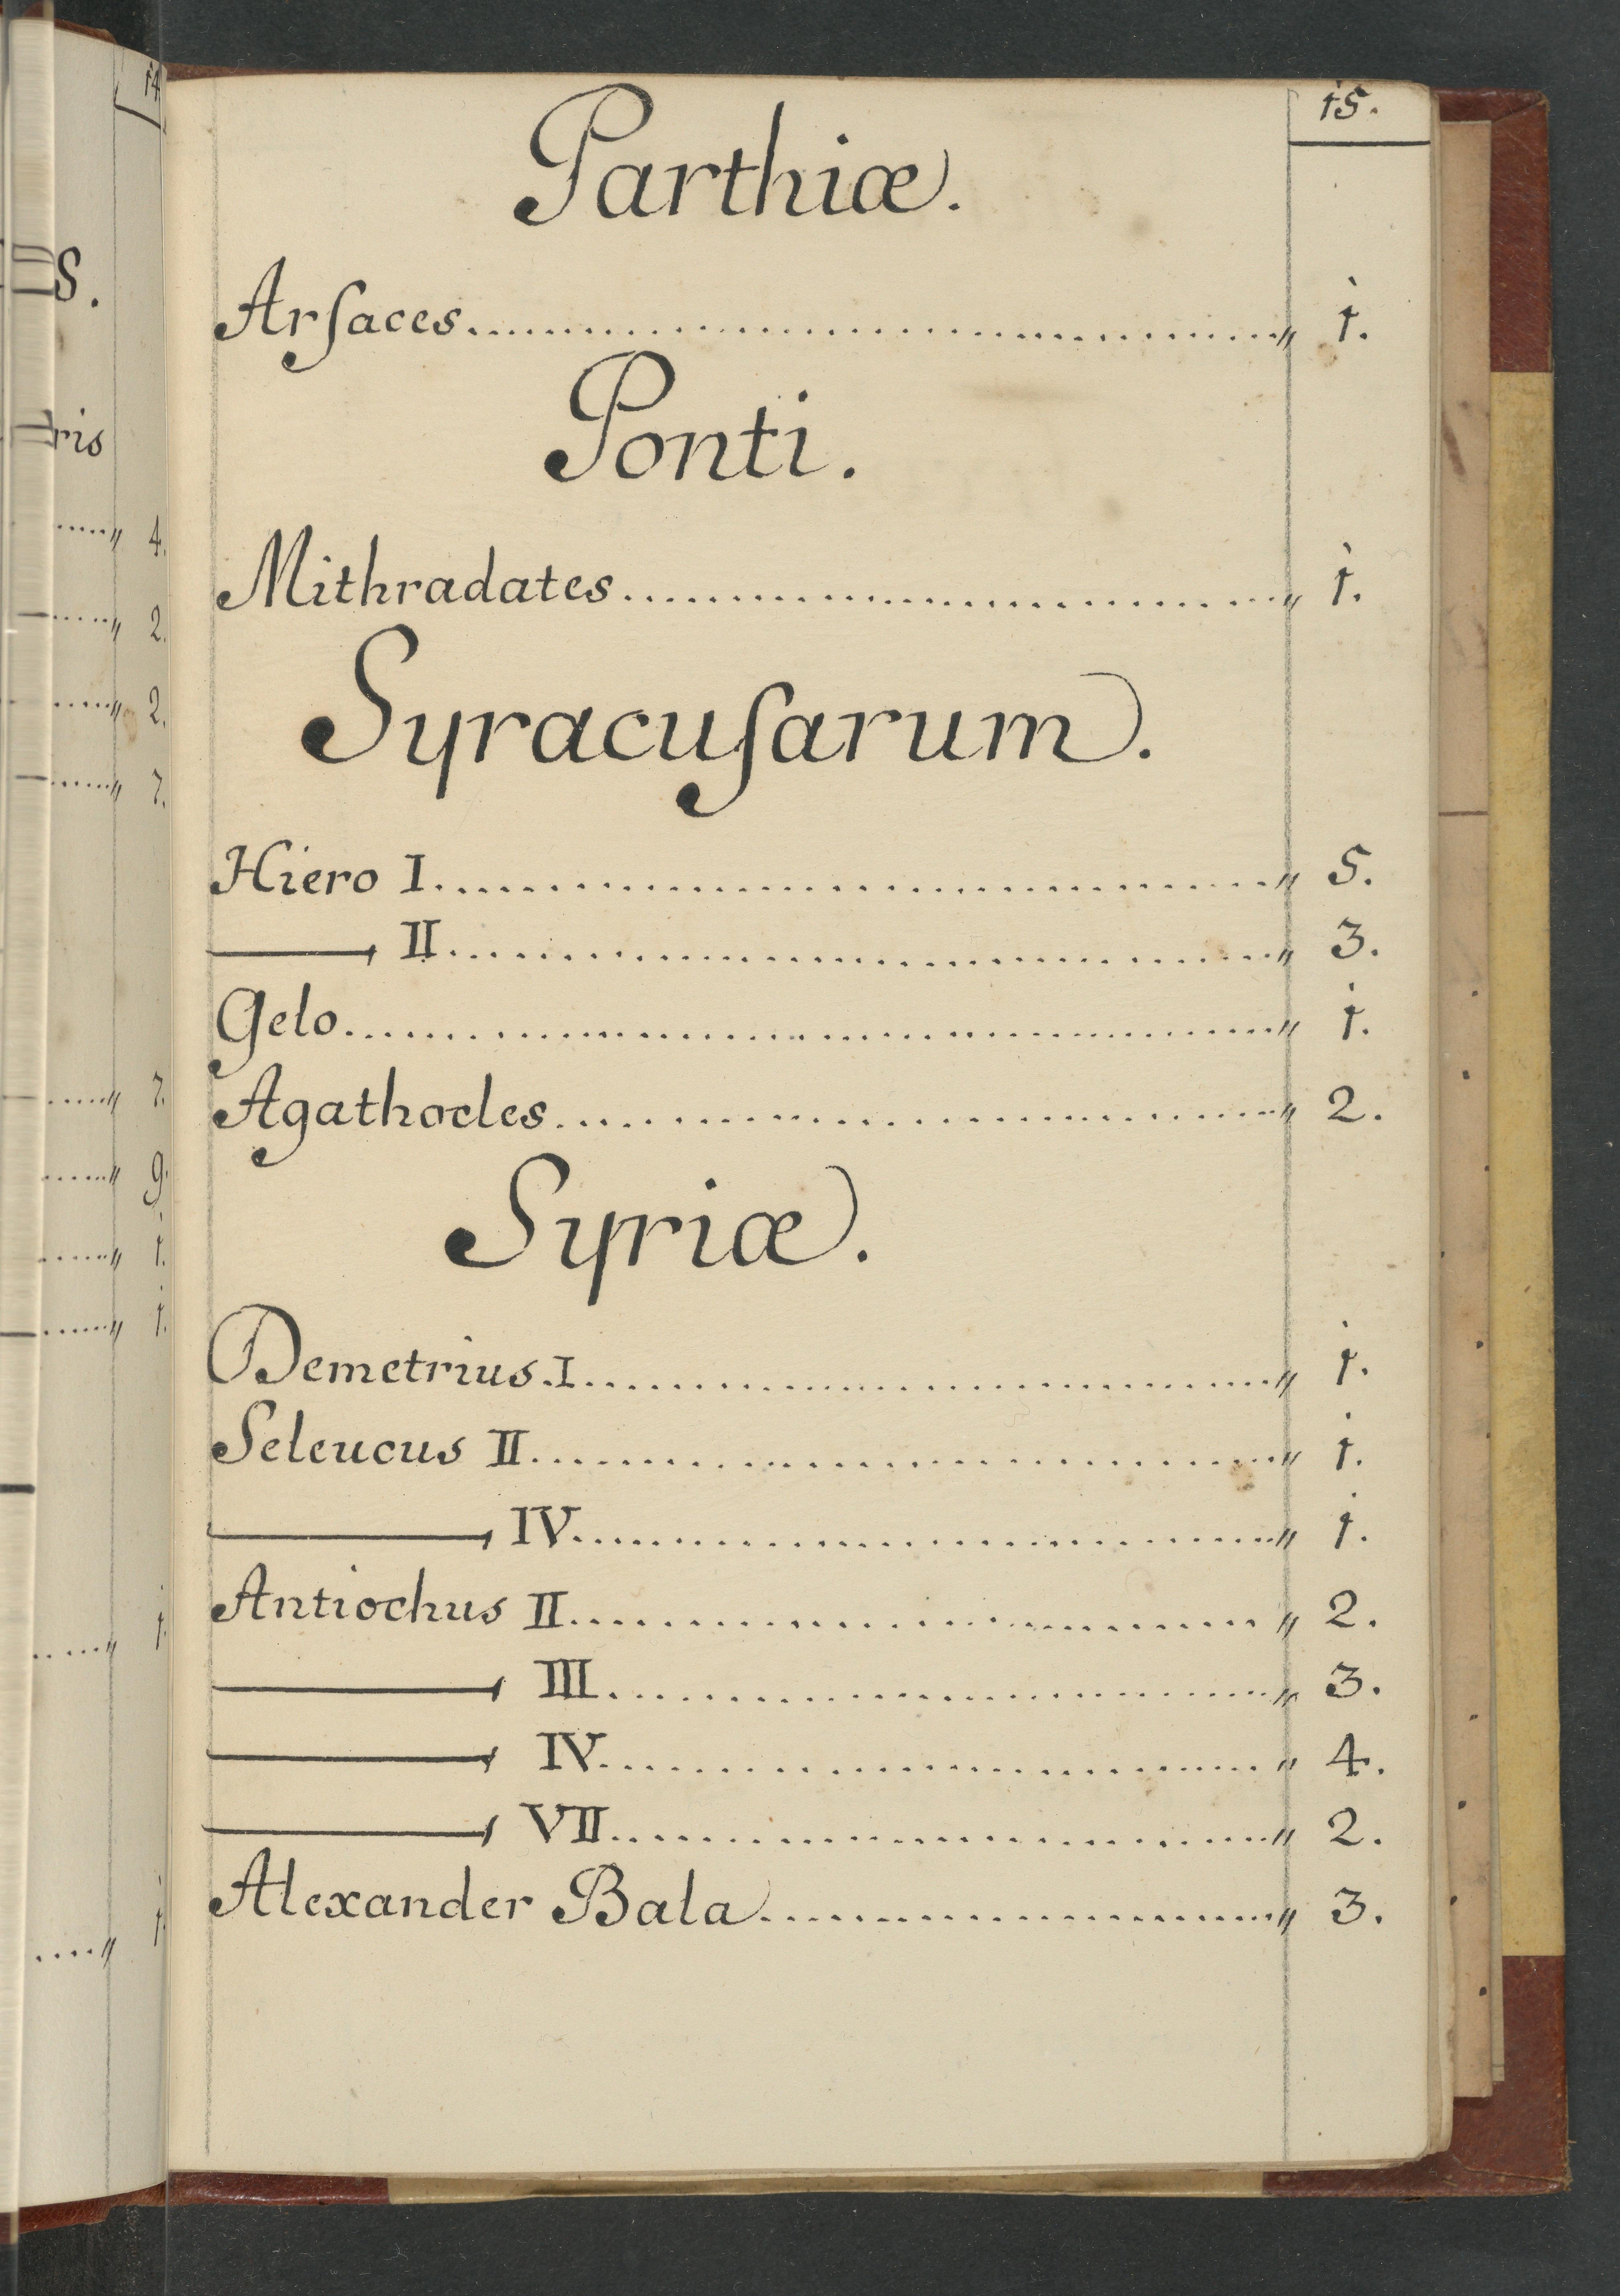 14
S.
ris
〃 4.
〃 2.
〃 2.
〃 7.
〃 7.
〃 9.
〃 1.
〃 1.
〃 1.
〃 1
15.
Parthiæ.
Arſaces........................................〃 1.
Ponti.
Mithradates..............................〃 1.
Syracuſarum.
Hiero I........................................〃 5.
——— II........................................〃 3.
Gelo............................................〃 1.
Agathocles..................................〃 2.
Syriæ.
Demetrius.I..................................〃 1.
Seleucus II..................................〃 1.
——— IV..................................〃 1.
Antiochus II................................〃 2.
——— III................................〃 3.
——— IV................................〃 4.
——— VII................................〃 2.
Alexander Bala..........................〃 3.